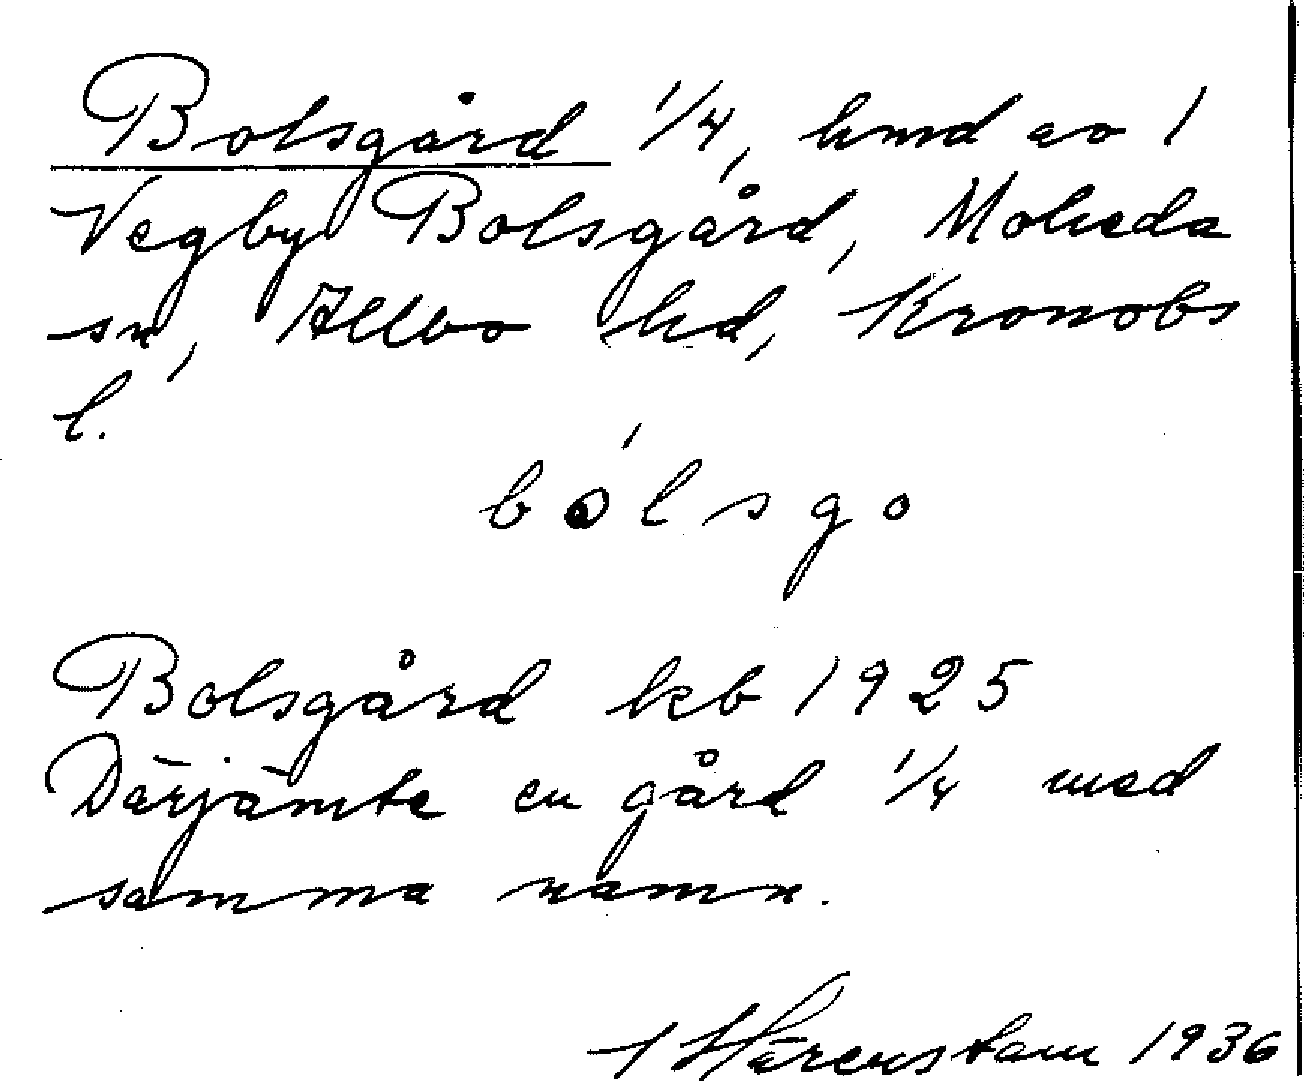 Bolsgård 1/4, hmd av 1
Vegby Bolsgård, Moheda
sn, Allbo hd, Kronobs
l.
bólsgo
Bolsgård kb 1925
Därjämte en gård 1/4 med
samma namn.
Härenstam 1936